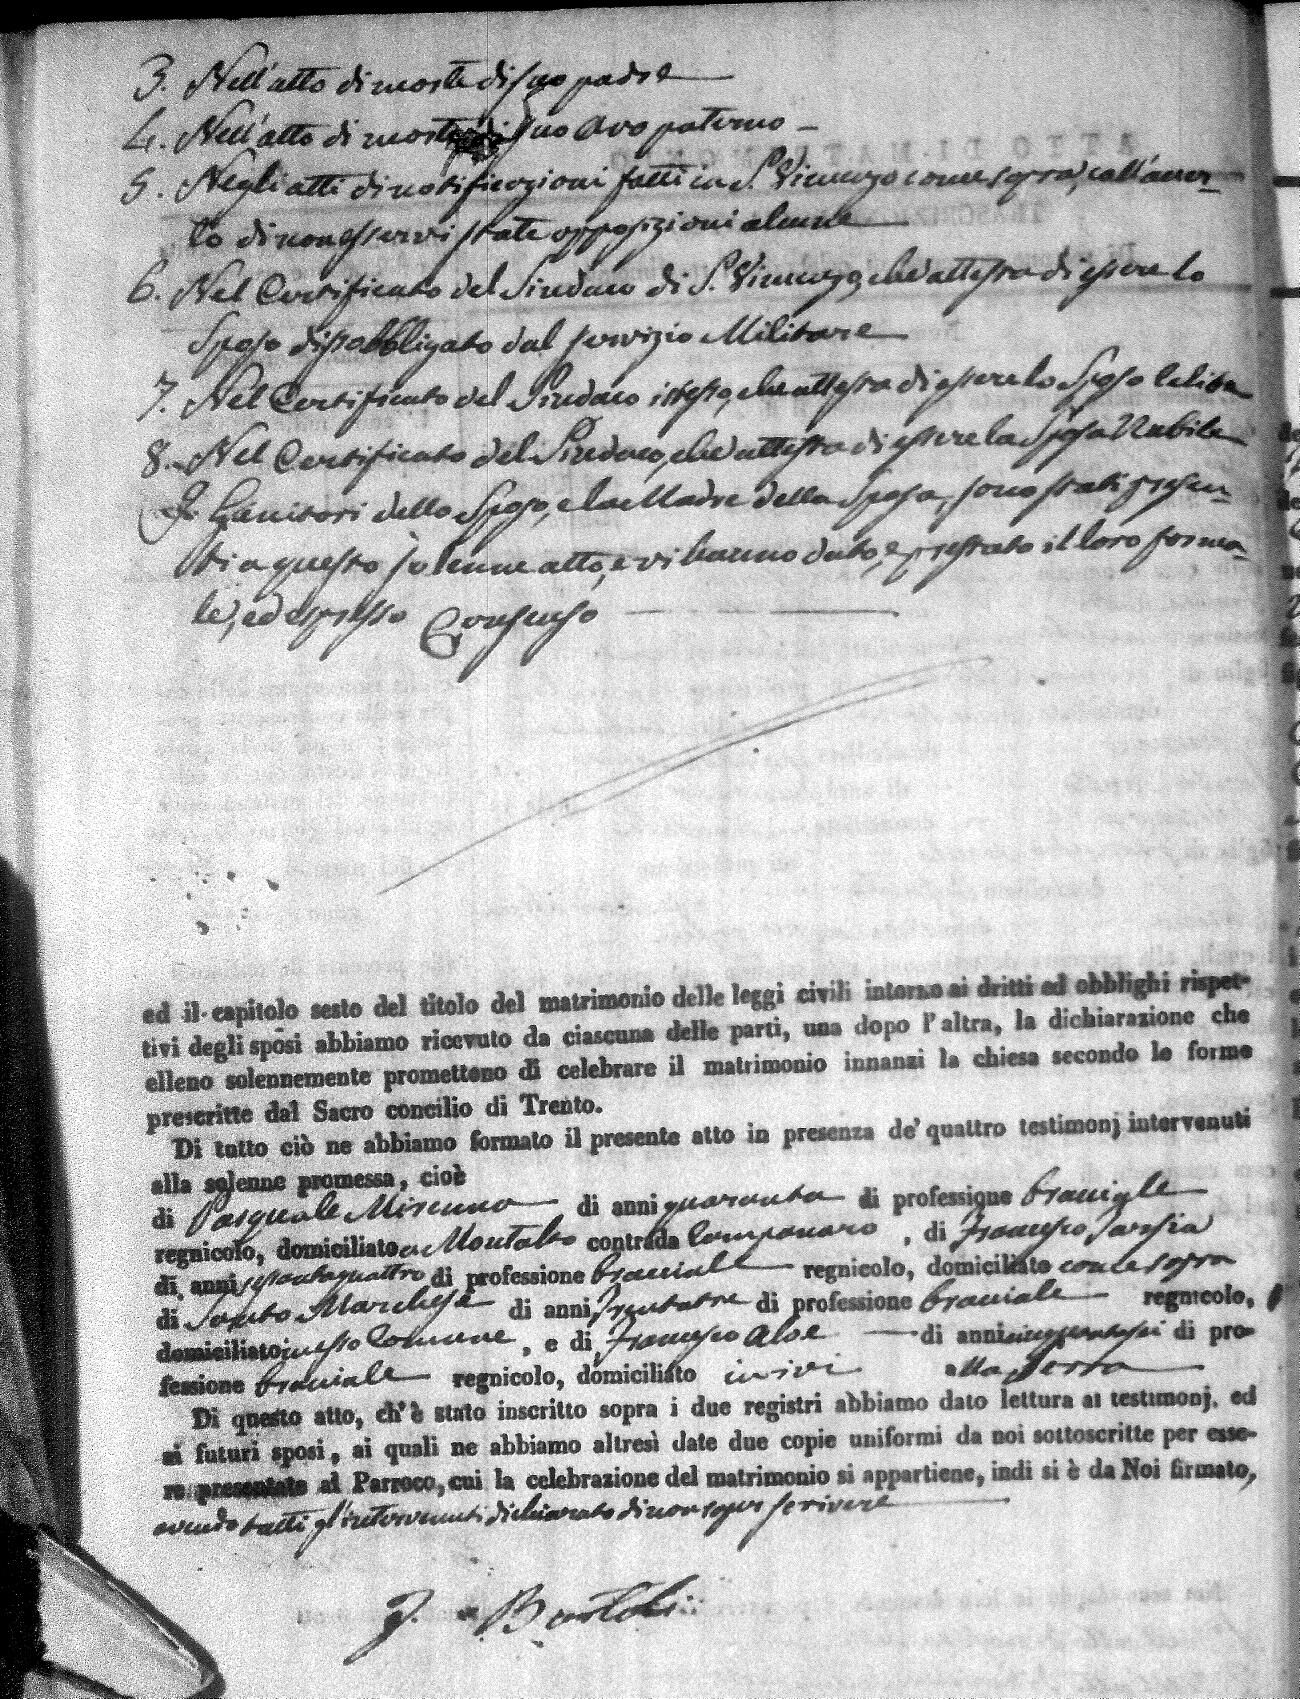 3. Nell'atto di morte di suo padre
4. Nell'atto di morte di suo Avo paterno
5. Negli atti di notificazioni fatti in S. Vincenzo come sopra, coll'assen-
to di non esservi state opposizioni alcune
6. Nel Certificato del Sindaco di S. Vincenzo, che attesta di essere lo
Sposo disobbligato dal servizio Militare
7. Nel Certificato del Sindaco istesso, che attesta di essere lo Sposo Celibe
8. Nel Certificato del Sindaco, che attesta di essere la Sposa Nubile
I Genitori dello Sposo, e la Madre della Sposa, sono stati presen-
ti a questo solenne atto, e vi hanno dato, e prestato il loro forma-
le, ed espresso Consenso
ed il capitolo sesto del titolo del matrimonio delle leggi civili intorno ai dritti ed obblighi rispet-
tivi degli sposi abbiamo ricevuto da ciascuna delle parti, una dopo l'altra, la dichiarazione che
elleno solennemente promettono di celebrare il matrimonio innanzi la chiesa secondo le forme
prescritte dal Sacro concilio di Trento.
Di tutto ciò ne abbiamo formato il presente atto in presenza de' quattro testimonj intervenuti
alla solenne promessa, cioè
di Pasquale Miscuno di anni quaranta di professione bracciale
regnicolo, domiciliato a Montalto contrada Companaro, di Francesco Tarsia
di anni sessantaquattro di professione bracciale regnicolo, domiciliato come sopra
di Santo Marchese di anni trentatre di professione bracciale regnicolo,
domiciliato in esso Comune, e di Francesco Aloe di anni di pro-
fessione bracciale regnicolo, domiciliato ivi alla Terra
Di questo atto, ch'è stato inscritto sopra i due registri abbiamo dato lettura ai testimonj, ed
ai futuri sposi, ai quali ne abbiamo altresì date due copie uniformi da noi sottoscritte per esse-
re presentate al Parroco, cui la celebrazione del matrimonio si appartiene, indi si è da Noi firmato,
avendo tutti gl'intervenuti dichiarato di non saper scrivere